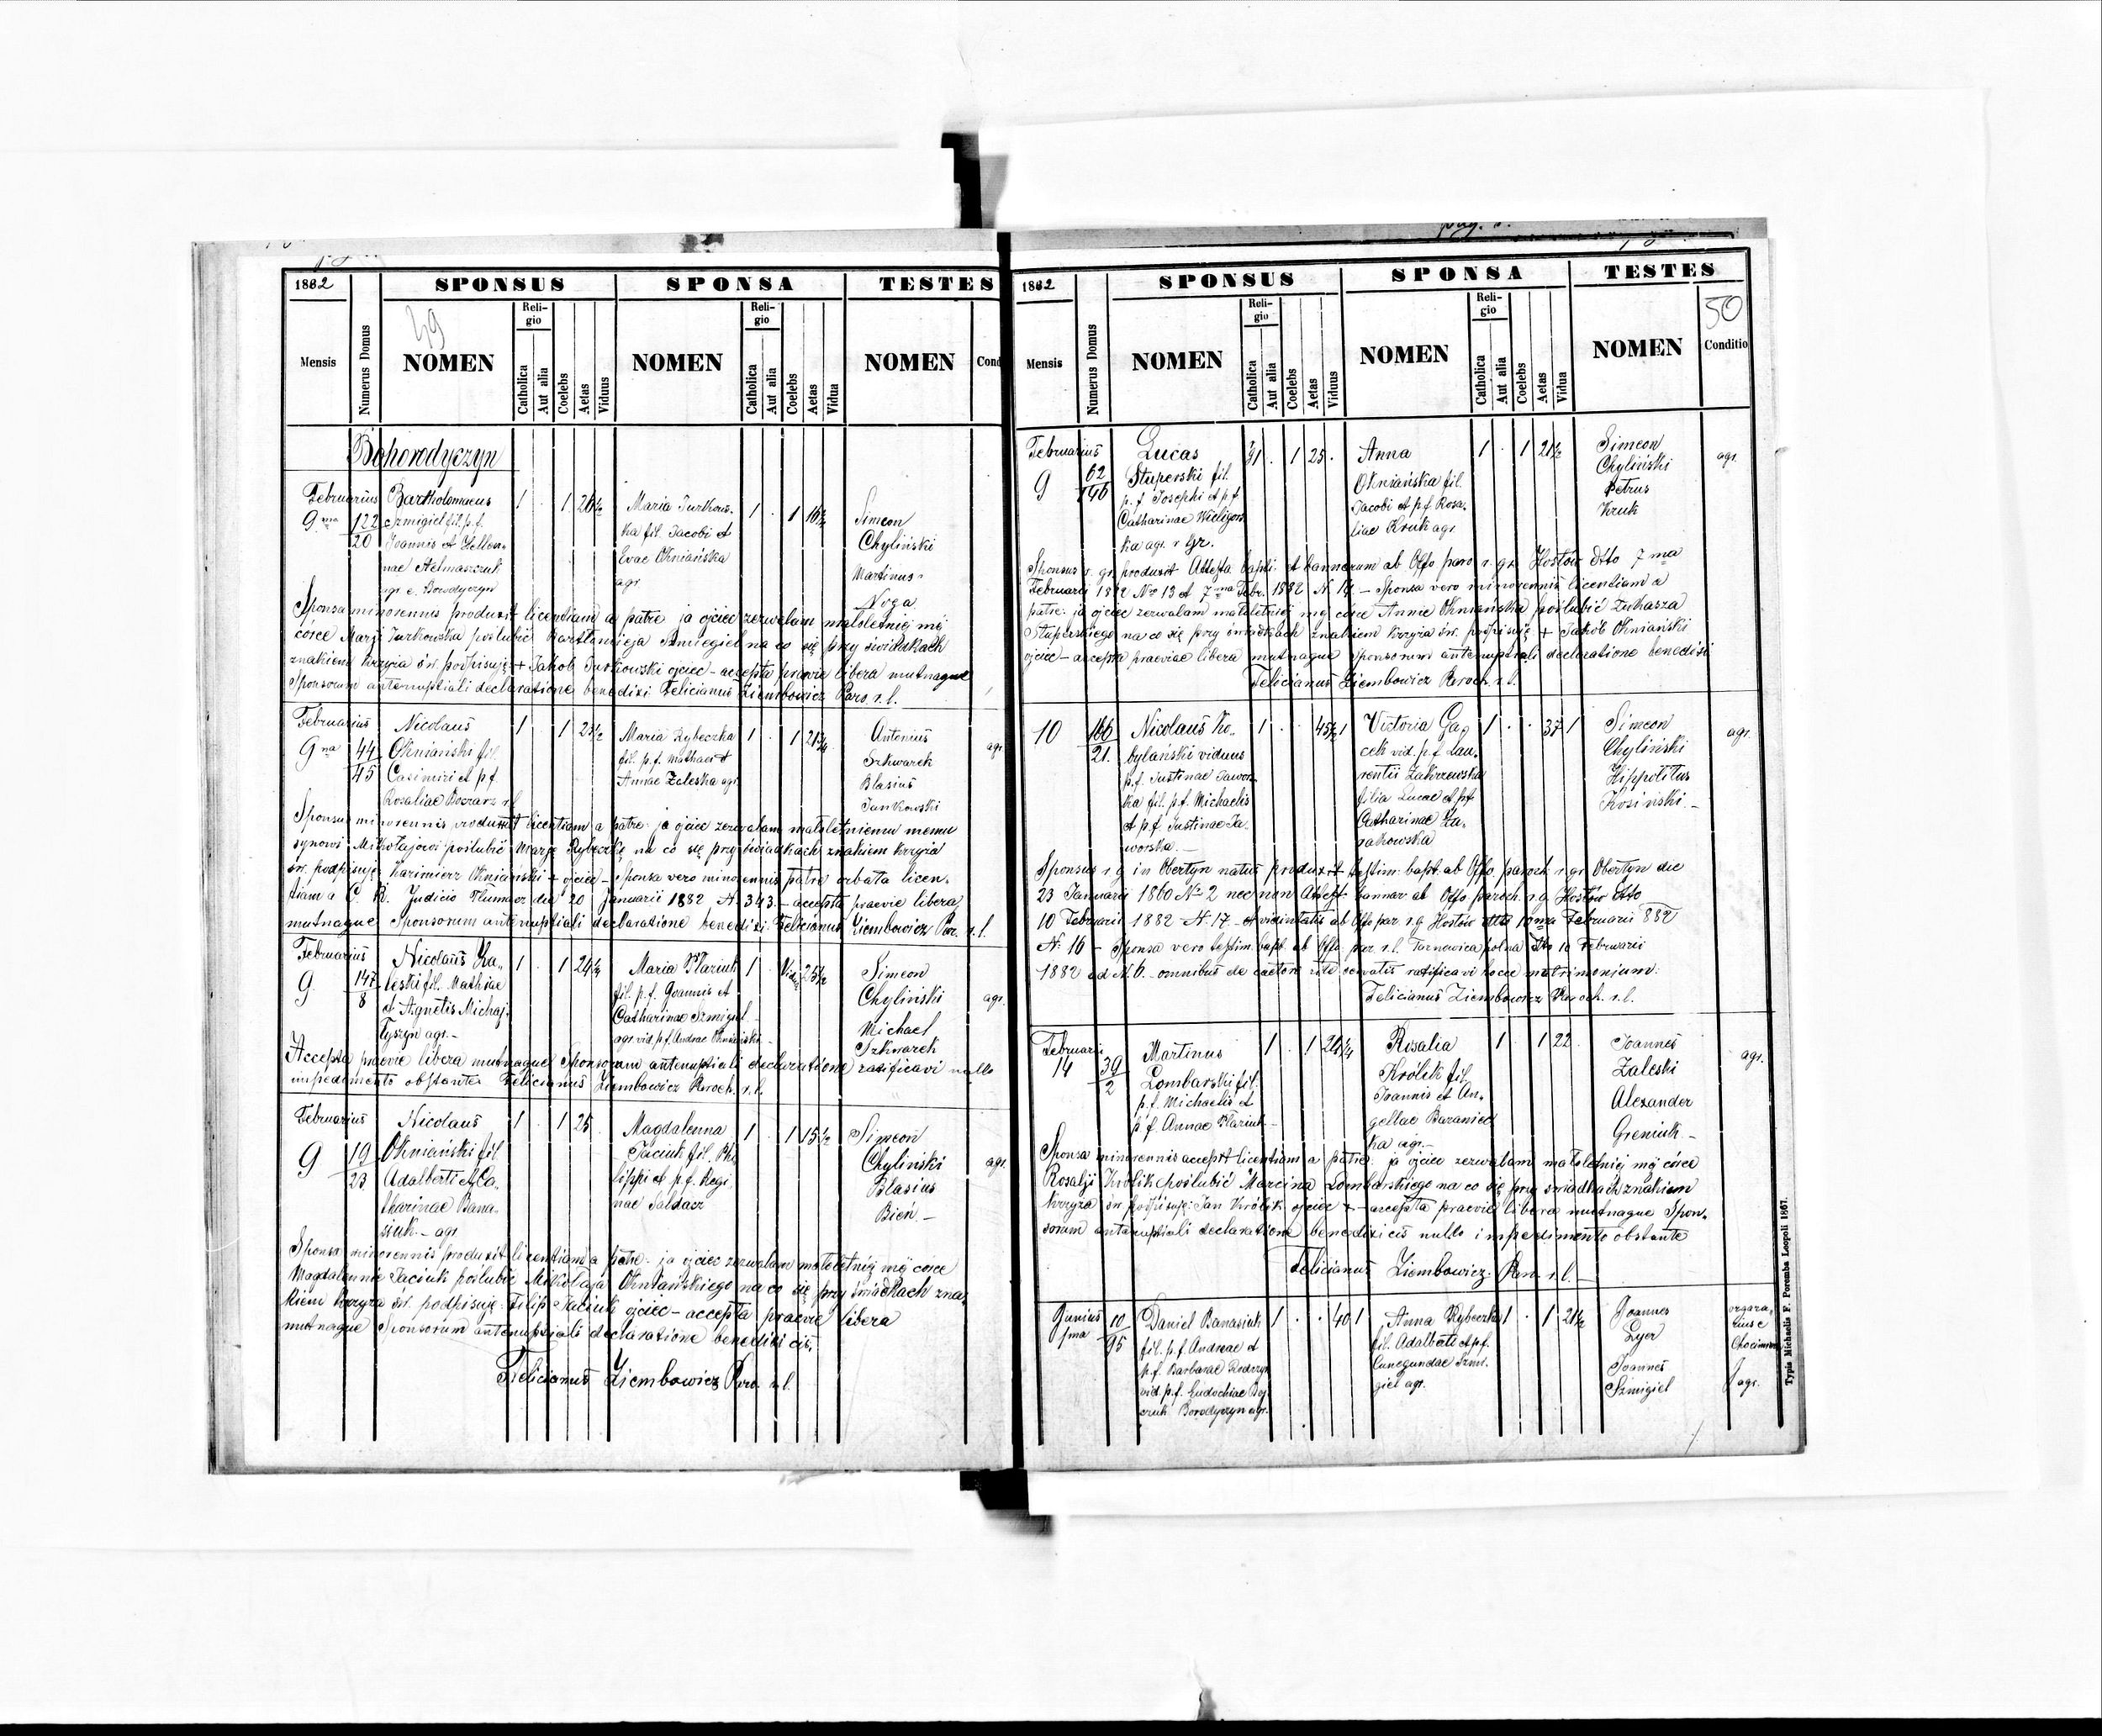 1882
SPONSUS
SPONSA
TESTES
Mensis
Numerus Domus
49
NOMEN
Reli-
gio
Catholica
Aut alia
Coelebs
Aetas
Viduus
NOMEN
Reli-
gio
Catholica
Aut alia
Coelebs
Aetas
Vidua
NOMEN
Cond
Bohorodyczyn
Februarius
9na
122
20
Bartholomaeus
Szmigiel fil. p.f.
Joannis et Hellen-
nae
agr. e. Borodyczyn
1 . 1 26½
Maria Jurkows-
ka fil. Jacobi et
Evae Okniańska
agr
1 . 1 16½
Simeon
Chyliński
Martinus
Noga
Sponsa minorennis produxit licentiam a patre ja ojciec zezwalam małoletniej mej
córce Marji Jurkowska poślubić Bartłomieja Szmiegiel na co się przy świadkach
znakiem krzyża św. podpisuję + Jakob Jurkowski ojciec - accepta praevie libera mutuaque
Sponsorum antenuptiali declaratione benedixi Felicianus Ziembowicz Paro. r.l.
Februarius
9na
44
45
Nicolaus
Okniański fil.
Casimiri et p.f.
Rosaliae Boszarz r.l
1 . 1 21½
Maria Rybeczka
fil. p.f. Mathaei et
Annae Zaleska agr.
1 . 1 21¾
Antonius
Szkwarek
Blasius
Jankowski
agr
Sponsus minorennis produxit licentiam a patre: ja ojciec zezwalam małoletniemu memu
synowi Mikołajowi poślubić Marję Rybeczkę na co się przy świadkach znakiem krzyża
św. podpisuję Kazimierz Okniański + ojciec - Sponsa vero minorennis patre orbata licen-
tiam a C. R. Judicio Tłumacz. die 20 Januarii 1882 N. 343 - accepta praevie libera
mutuaque Sponsorum antenuptiali declaratione benedixi: Felicianus Ziembowicz Par. r.l.
Februarius
9
147
8
Nicolaus Za-
leski fil. Mathiae
et Agnetis Michaj-
łyszyn agr. -
1 . 1 24½
Maria Błaziuk
fil. p.f. Joannis et
Catharinae Szmigiel
agr vid. p.f. Andreae Okniański -
1 . Vidua 25½
Simeon
Chyliński
Michael
Szkwarek
agr.
Accepta praevie libera mutuaque Sponsorum antenuptiali declaratione ratificavi nullo
impedimento obstante Felicianus Ziembowicz Paroch. r.l.
Februarius
9
19
23
Nicolaus
Okniański fil
Adalberti et Ca-
tharinae Bana-
siuk - agr
1 . 1 25
Magdalenna
Jaciuk fil. Phi
lippi et p.f. Regi
nae Sałdacz
1 . 1 15½
Simeon
Chyliński
Blasius
Bień -
agr.
Sponsa minorennis produxit licentiam a patre: ja ojciec zezwalam małoletniej mej córce
Magdalennie Jaciuk poślubić Mikołaja Okniańskiego na co się przy świadkach zna-
kiem krzyża św. podpisuję: Filip Jaciuk ojciec - accepta praevie libera
mutuaque Sponsorum antenuptiali declaratione benedixi eis.
Felicianus Ziembowicz Paro. r.l.
1882
SPONSUS
SPONSA
TESTES
50
Mensis
Numerus Domus
NOMEN
Reli-
gio
Catholica
Aut alia
Coelebs
Aetas
Viduus
NOMEN
Reli-
gio
Catholica
Aut alia
Coelebs
Aetas
Vidua
NOMEN
Conditio
Februarius
9
62
146
Lucas
Stuperski fil.
p.f. Josephi et p.f.
Catharinae Wieligors
ka agr. r. gr.
1 . 1 25 .
Anna
Okniańska fil.
Jacobi et p.f. Rosa-
liae Kruk agr
1 . 1 21½
Simeon
Chyliński
Petrus
Kruk
agr.
Sponsus r. gr. produxit Attesta bapti. et bannorum ab Offo paro r. gr. Hostów dtto 7ma
Februarii 1882 Nro 13 et 7ma Febr. 1882 N. 14. - Sponsa vero minorennis licentiam a
patre: ja ojciec zezwalam małoletniej mej córce Annie Okniańska poślubić Łukasza
Stuperskiego na co się przy świadkach znakiem krzyża św. podpisuję + Jakób Okniański
ojciec - accepta praeviae libera mutuaque Sponsorum antenuptiali declaratione benedixi
Felicianus Ziembowicz Paroch. r.l.
10
166
21.
Nicolaus Ko-
byłański viduus
p.f. Justinae Jawor
ka fil. p.f. Michaelis
et p.f. Justinae Ja-
worska. -
1 . . 45½ 1
Victoria Ga-
cek vid. p.f. Lau-
rentii Zakrzewska
filia Lucae et p.f.
Catharinae Za-
rakowska
1 . . 37 1
Simeon
Chyliński
Hippolitus
Kosiński -
agr.
Sponsus r.g in Obertyn natus produxit testim. bapt. ab Offo. paroch. r.gr. Obertyn die
23 Januarii 1860 No 2 nec non Attest. bannor ab Offo paroch. r.g. Hostów dtto
10 Februarii 1882 N. 17 - et viduitatis ab Offo par r.g. Hostów dtto 10ma Februarii 882
N. 16 - Sponsa vero testim. bapt ab Offo par r.l. Tarnowica polna dtto 10 Februarii
1882 ad N. 6. - omnibus de caetero rite servatis ratificavi hocce matrimonium:
Felicianus Ziembowicz Paroch. r.l.
Februarii
14
39
2
Martinus
Lombarski fil.
p.f. Michaelis et
p.f. Annae Błaziuk -
1 . 1 24¼
Rosalia
Królik fil.
Joannis et An-
gellae Baraniec
ka agr. -
1 . 1 22
Joannes
Zaleski
Alexander
Greniuk -
agr.
Sponsa minorennis accepit licentiam a patre: ja ojciec zezwalam małoletniej mej córce
Rosalji Królik poślubić Marcina Lombarskiego na co się przy świadkach znakiem
krzyża św. podpisuję: Jan Królik ojciec + - accepta praevie libera mutuaque Spon-
sorum antenuptiali declaratione benedixi eis nullo impedimento obstante
Felicianus Ziembowicz: Par. r.l. -
Junius
1ma
10
95
Daniel Banasiuk
fil. p.f. Andreae et
p.f. Barbarae
vid. p.f. Eudochiae Boj
czuk Borodyczyn agr.
1 . . 40 1
Anna Rybeczka
fil. Adalberti et p.f.
Cunegundae Szmi-
giel agr.
1 . 1 21½
Joannes
Lyer
Joannes
Szmigiel
agr.
Typis Michaelis F. Poremba Leopoli 1867.